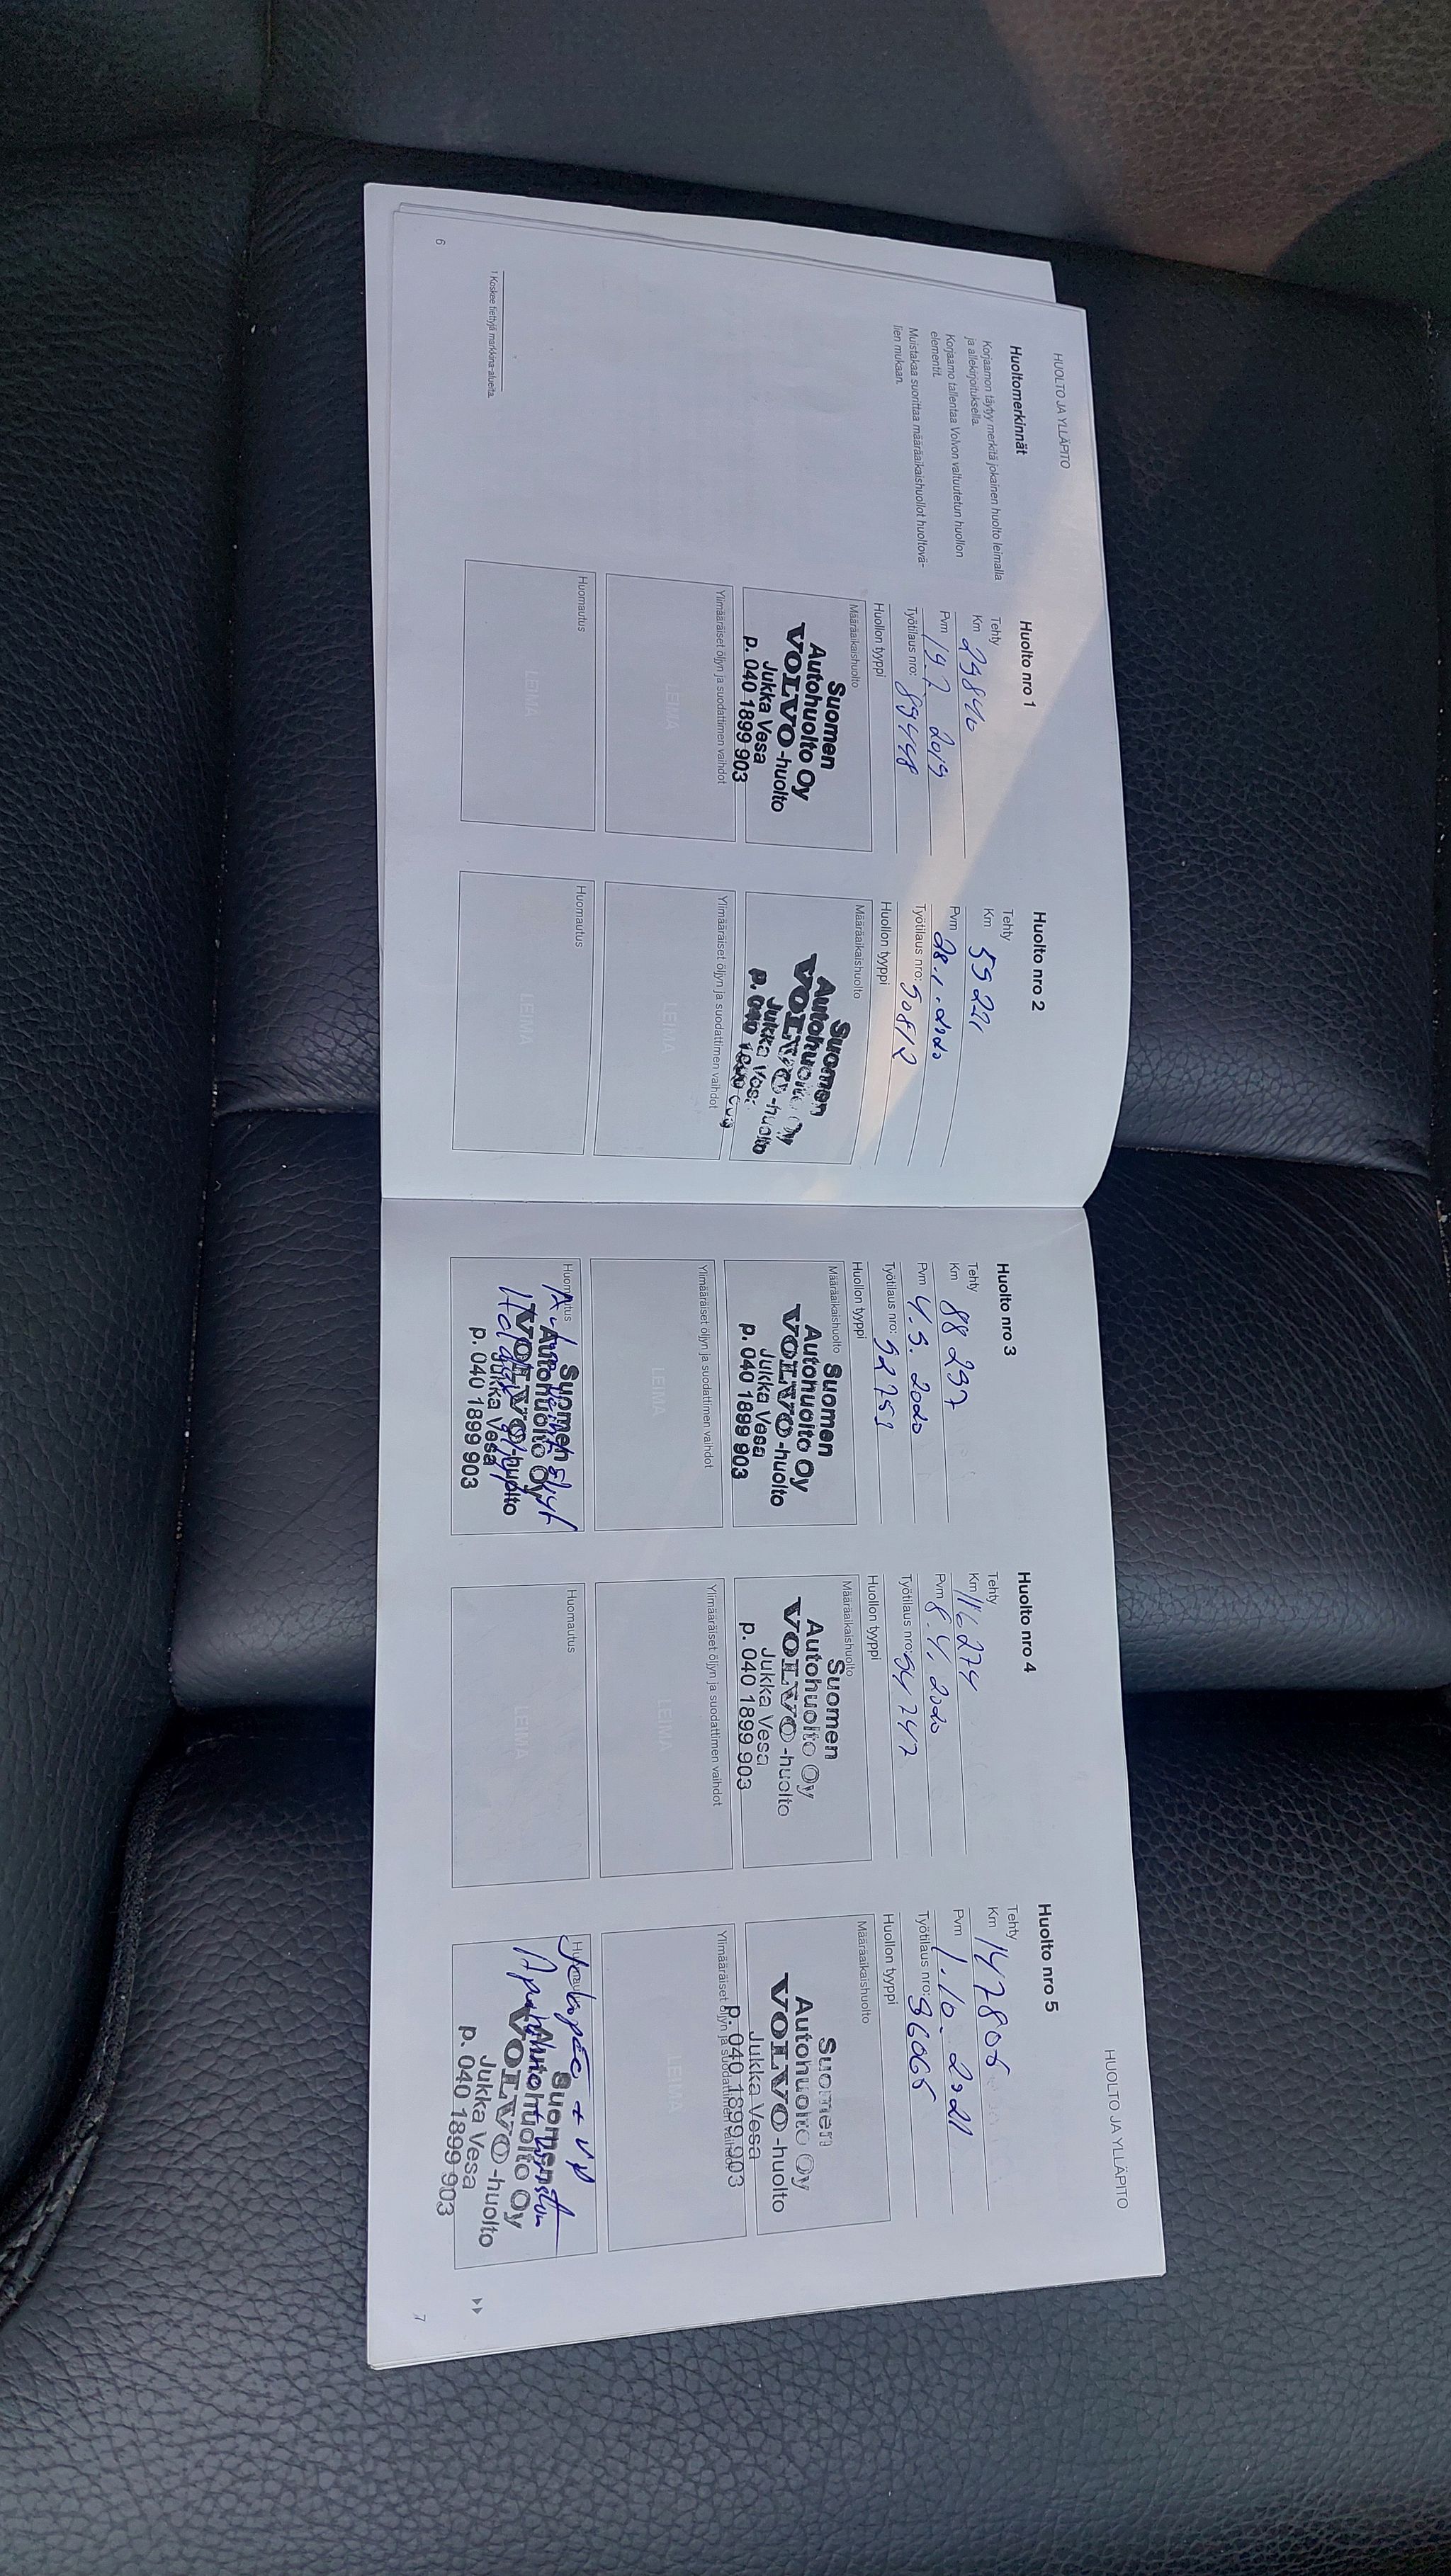 HUOLTO JA YLLÄPITO
Huoltomerkinnät
Korjaamon täytyy merkitä jokainen huolto leimalla
ja allekirjoituksella.
Korjaamo tallentaa Volvon valtuutetun huollon
elementit.
Muistakaa suorittaa määräaikaishuollot huoltovä-
lien mukaan.
¹ Koskee tiettyjä markkina-alueita.
6
Huolto nro 1
Tehty
Km 29840
Pvm 19.7 2019
Työtilaus nro: 89448
Huollon tyyppi
Määräaikaishuolto
Suomen
Autohuolto Oy
VOLVO-huolto
Jukka Vesa
p. 040 1899 903
Ylimääräiset öljyn ja suodattimen vaihdot
LEIMA
Huomautus
LEIMA
Huolto nro 2
Tehty
Km 59221
Pvm 28.1.2020
Työtilaus nro: 90812
Huollon tyyppi
Määräaikaishuolto
Suomen
Autohuolto Oy
VOLVO-huolto
Jukka
p. 040
Ylimääräiset öljyn ja suodattimen vaihdot
LEIMA
Huomautus
LEIMA
HUOLTO JA YLLÄPITO
Huolto nro 3
Tehty
Km 88 297
Pvm 4.9. 2020
Työtilaus nro: 92759
Huollon tyyppi
Määräaikaishuolto
Suomen
Autohuolto Oy
VOLVO-huolto
Jukka Vesa
p. 040 1899 903
Ylimääräiset öljyn ja suodattimen vaihdot
LEIMA
Huomautus
öljyt
Suomen
Autohuolto Oy
VOLVO-huolto
Jukka Vesa
p. 040 1899 903
Huolto nro 4
Tehty
Km 116274
Pvm 2020
Työtilaus nro: 94747
Huollon tyyppi
Määräaikaishuolto
Suomen
Autohuolto Oy
VOLVO-huolto
Jukka Vesa
p. 040 1899 903
Ylimääräiset öljyn ja suodattimen vaihdot
LEIMA
Huomautus
LEIMA
Huolto nro 5
Tehty
Km 147806
Pvm 1.10. 2021
Työtilaus nro: 96066
Huollon tyyppi
Määräaikaishuolto
Suomen
Autohuolto Oy
VOLVO-huolto
Jukka Vesa
p. 040 1899 903
Ylimääräiset öljyn ja suodattimen vaihdot
LEIMA
Suomen
Autohuolto Oy
VOLVO-huolto
Jukka Vesa
p. 040 1899 903
7